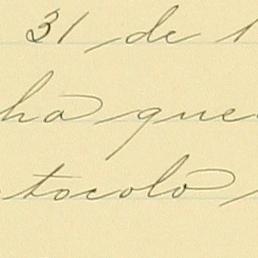 31 de 1
ha que
tocolo